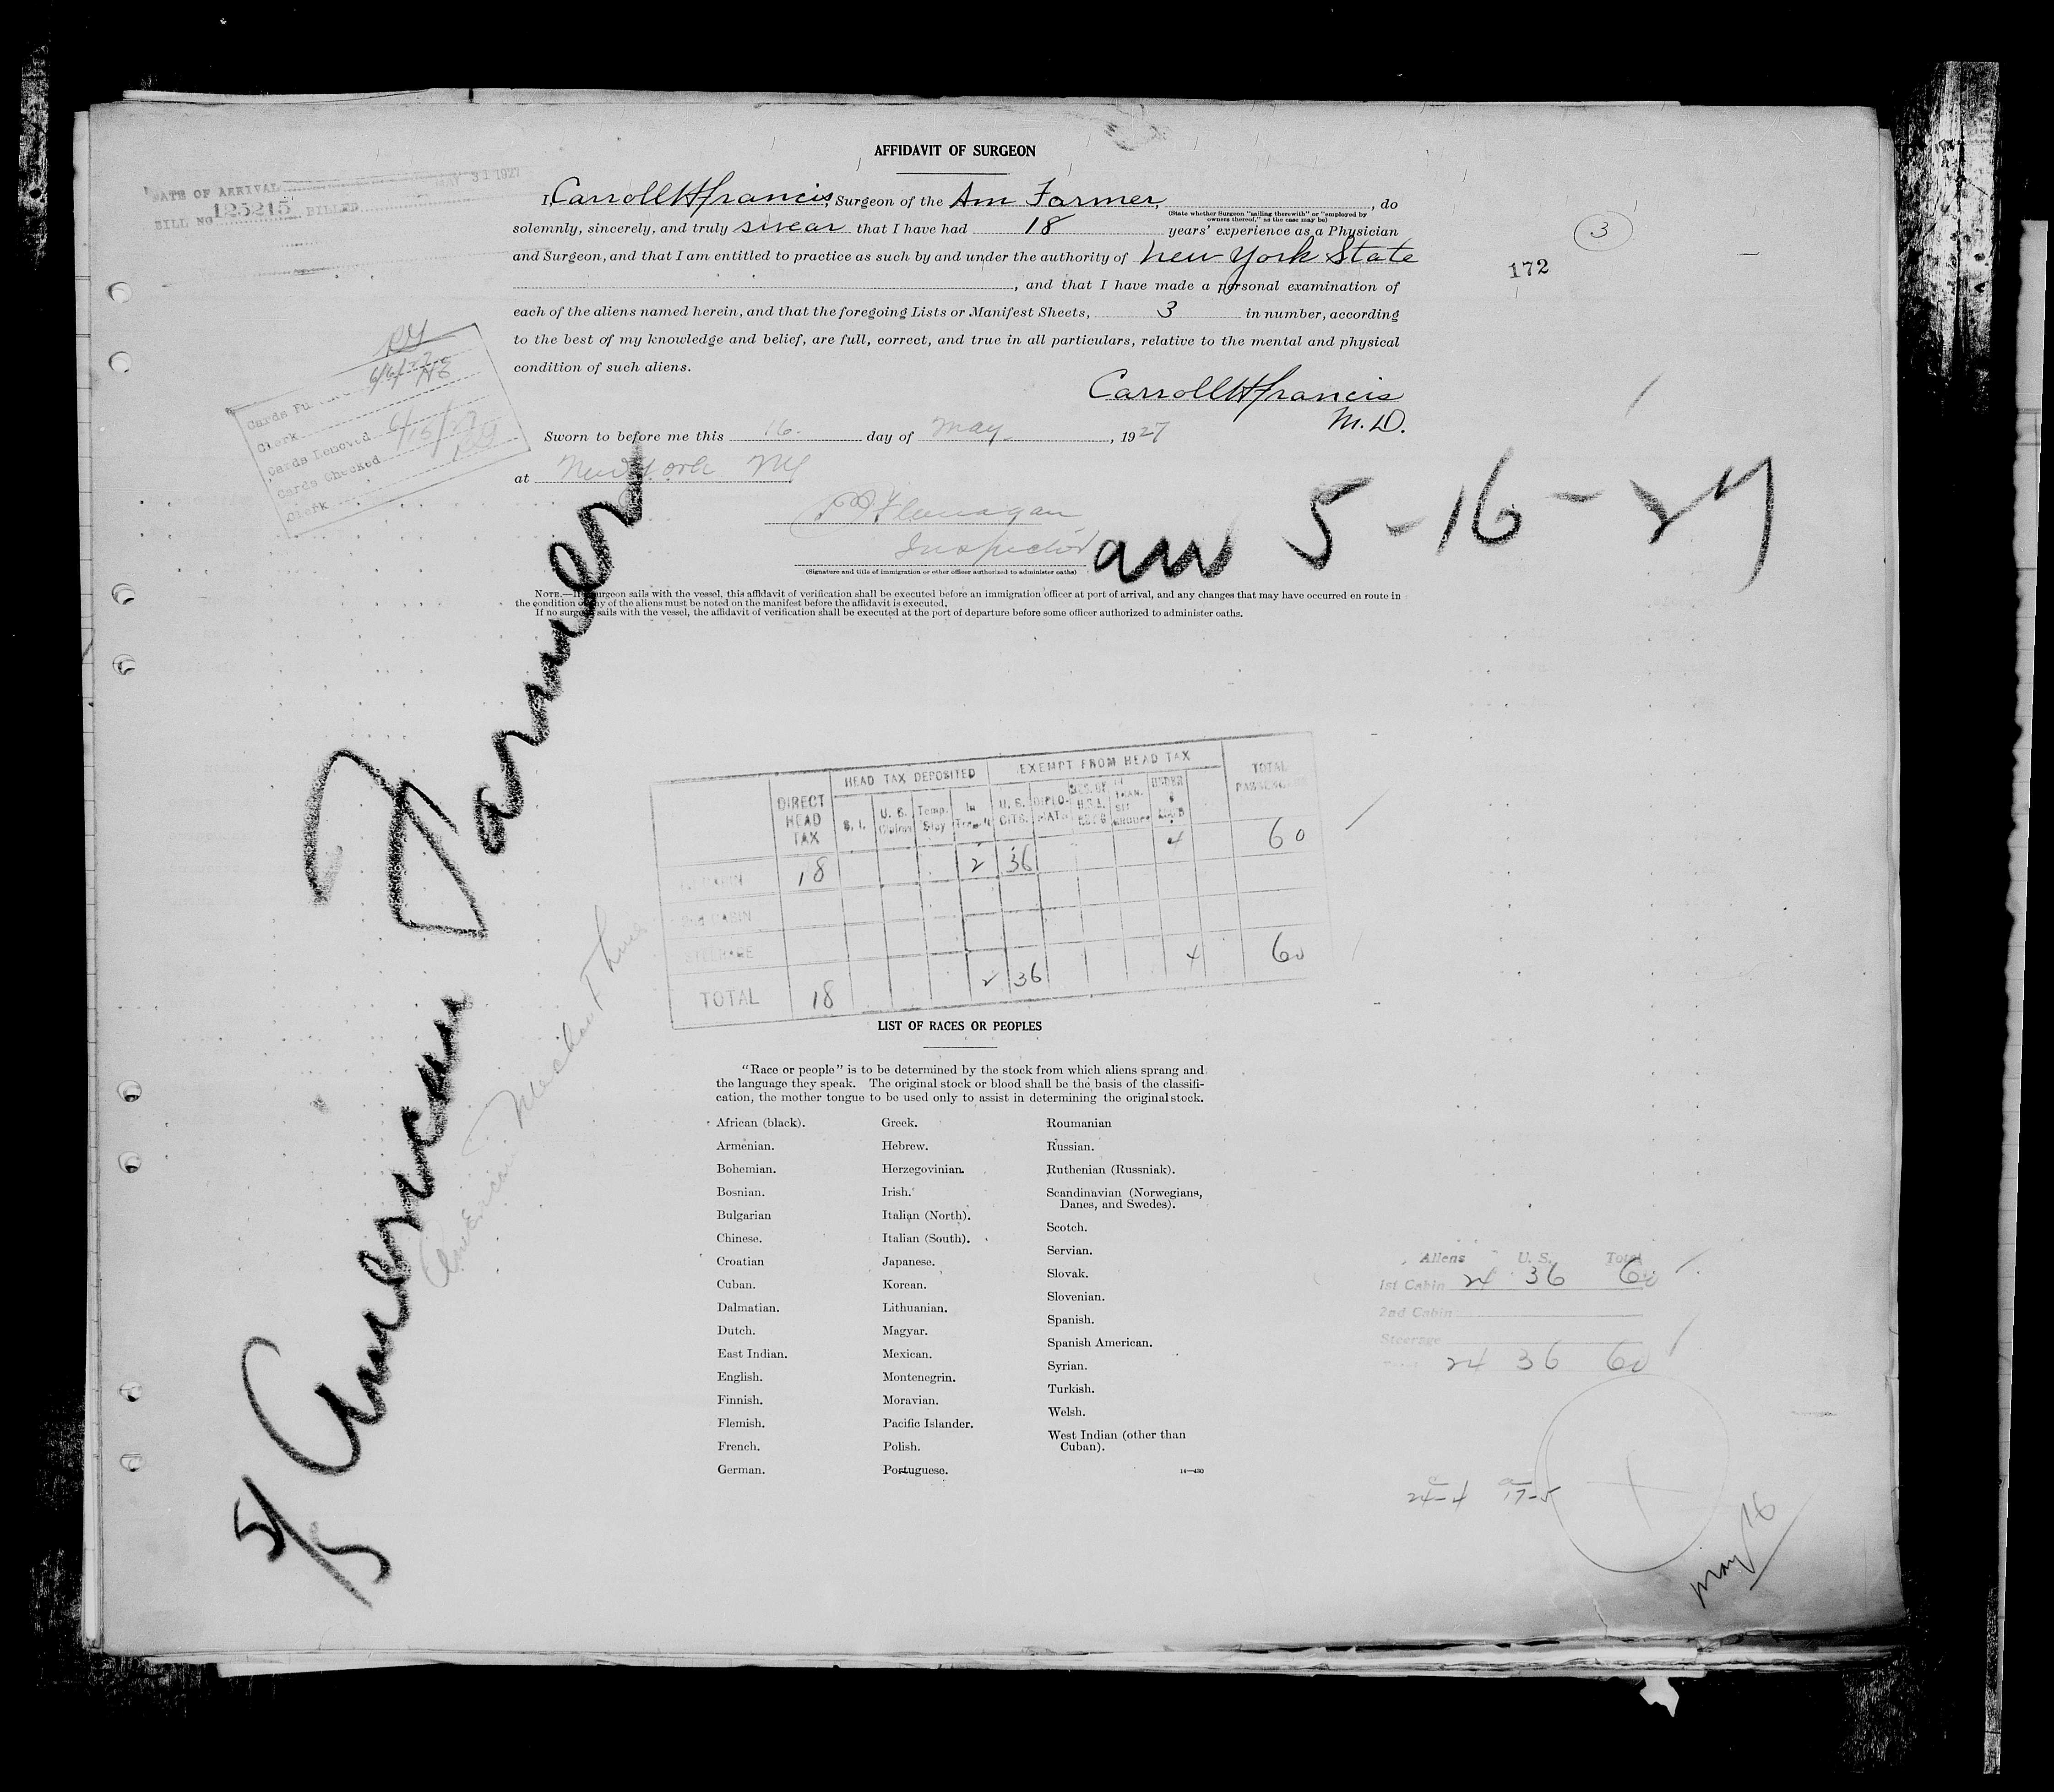 AFFIDAVIT OF SURGEON
DATE OF ARRIVAL MAY 31 1927
BILL NO. 125215 BILLED
I, Carroll H Francis, Surgeon of the Am Farmer, , do
(State whether Surgeon "sailing therewith" or "employed by
owners thereof," as the case may be)
solemnly, sincerely, and truly swear that I have had 18 years' experience as a Physician
and Surgeon, and that I am entitled to practice as such by and under the authority of New York State
, and that I have made a personal examination of
each of the aliens named herein, and that the foregoing Lists or Manifest Sheets, 3 in number, according
to the best of my knowledge and belief, are full, correct, and true in all particulars, relative to the mental and physical
condition of such aliens.
3
172
Carroll H Francis
M. D.
Cards
6/6/27
Clerk
Cards Removed 6/15/27
Cards Checked
Clerk
Sworn to before me this 16 day of May , 1927
at New York NY
Flanagan
Inspector
(Signature and title of immigration or other officer authorized to administer oaths)
5-16-27
NOTE.—If surgeon sails with the vessel, this affidavit of verification shall be executed before an immigration officer at port of arrival, and any changes that may have occurred en route in
the condition of any of the aliens must be noted on the manifest before the affidavit is executed.
If no surgeon sails with the vessel, the affidavit of verification shall be executed at the port of departure before some officer authorized to administer oaths.
S/S American Farmer
American Merchant Lines
HEAD TAX DEPOSITED EXEMPT FROM HEAD TAX TOTAL PASSENGERS
DIRECT HEAD TAX S. I. U. S. Temp. Stay In Transit U. S. CITS. DIPLOMATS UNDER
18 2 36 4 60
2nd CABIN
STEERAGE
TOTAL 18 2 36 4 60
LIST OF RACES OR PEOPLES
"Race or people" is to be determined by the stock from which aliens sprang and
the language they speak. The original stock or blood shall be the basis of the classifi-
cation, the mother tongue to be used only to assist in determining the original stock.
African (black).
Armenian.
Bohemian.
Bosnian.
Bulgarian
Chinese.
Croatian
Cuban.
Dalmatian.
Dutch.
East Indian.
English.
Finnish.
Flemish.
French.
German.
Greek.
Hebrew.
Herzegovinian.
Irish.
Italian (North).
Italian (South).
Japanese.
Korean.
Lithuanian.
Magyar.
Mexican.
Montenegrin.
Moravian.
Pacific Islander.
Polish.
Portuguese.
Roumanian
Russian.
Ruthenian (Russniak).
Scandinavian (Norwegians,
Danes, and Swedes).
Scotch.
Servian.
Slovak.
Slovenian.
Spanish.
Spanish American.
Syrian.
Turkish.
Welsh.
West Indian (other than
Cuban).
14—430
Aliens U. S. Total
1st Cabin 24 36 60
2nd Cabin
Steerage
24 36 60
24-4 17-5
May 16